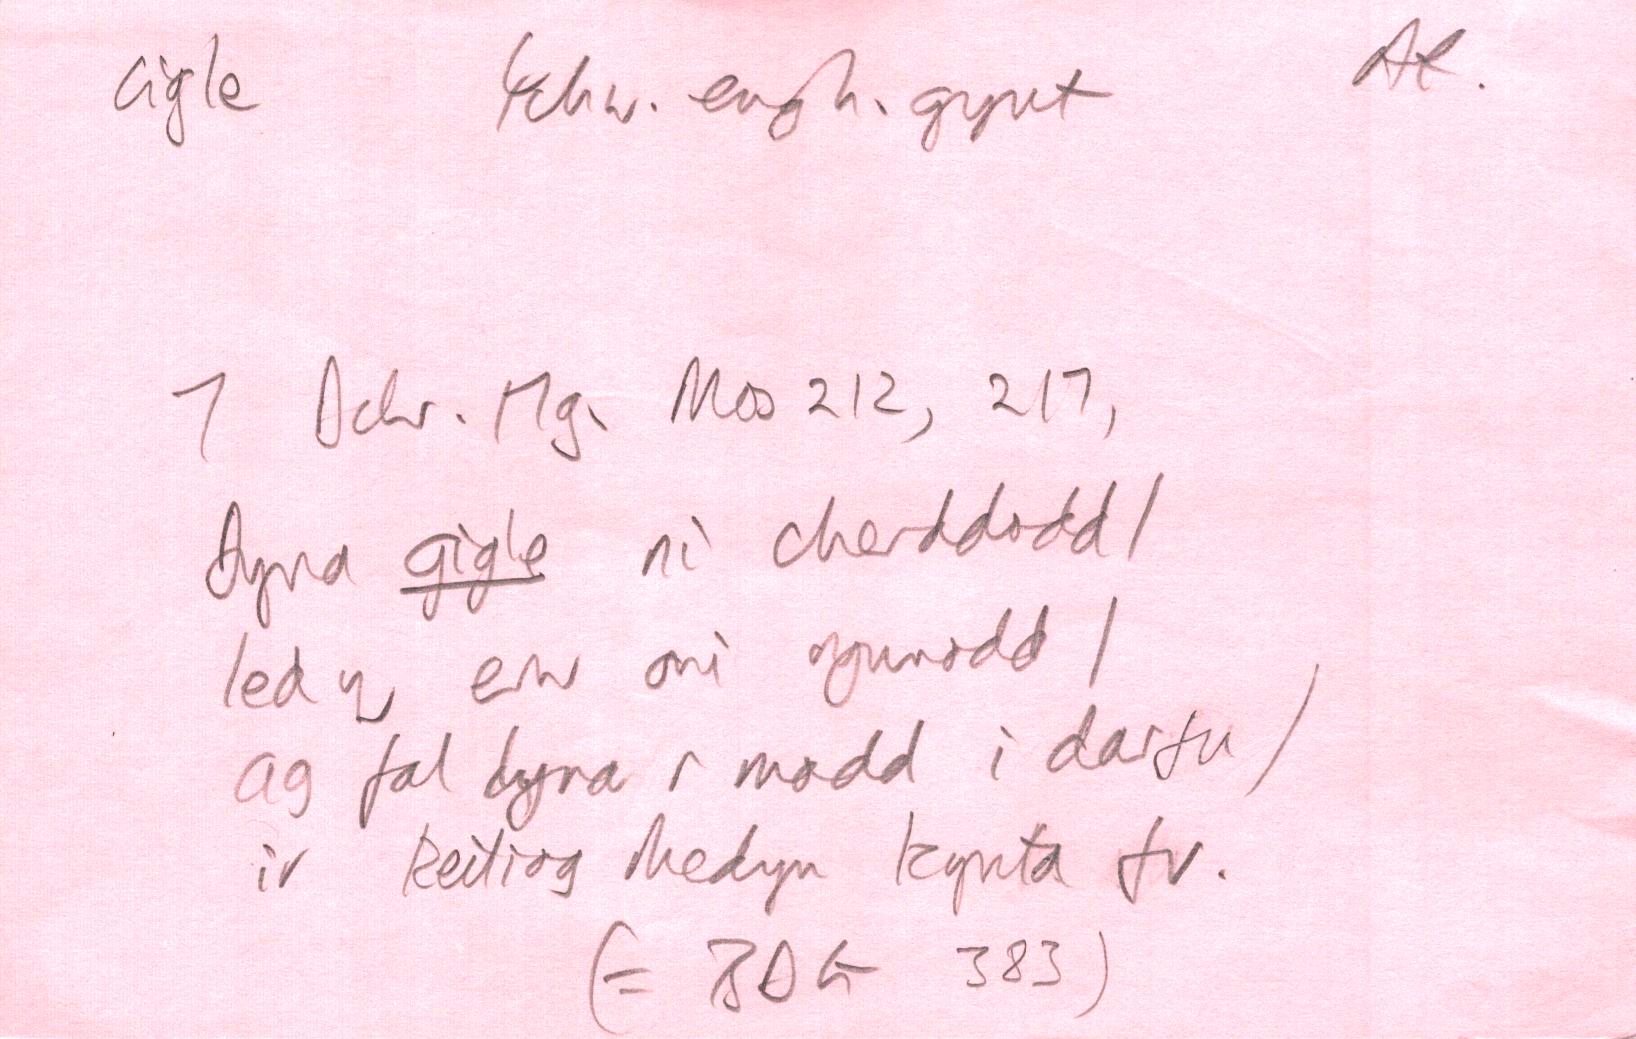 cigle Ychw. engh. gynt AR.
7 Dchr. 17g. Mos 212, 217,
dyna gigle ni cherddodd /
led yr erw oni ogunodd /
ag fal dyna r modd i darfu /
ir keiliog Rhedyn kynta fv.
(= BDG 383)